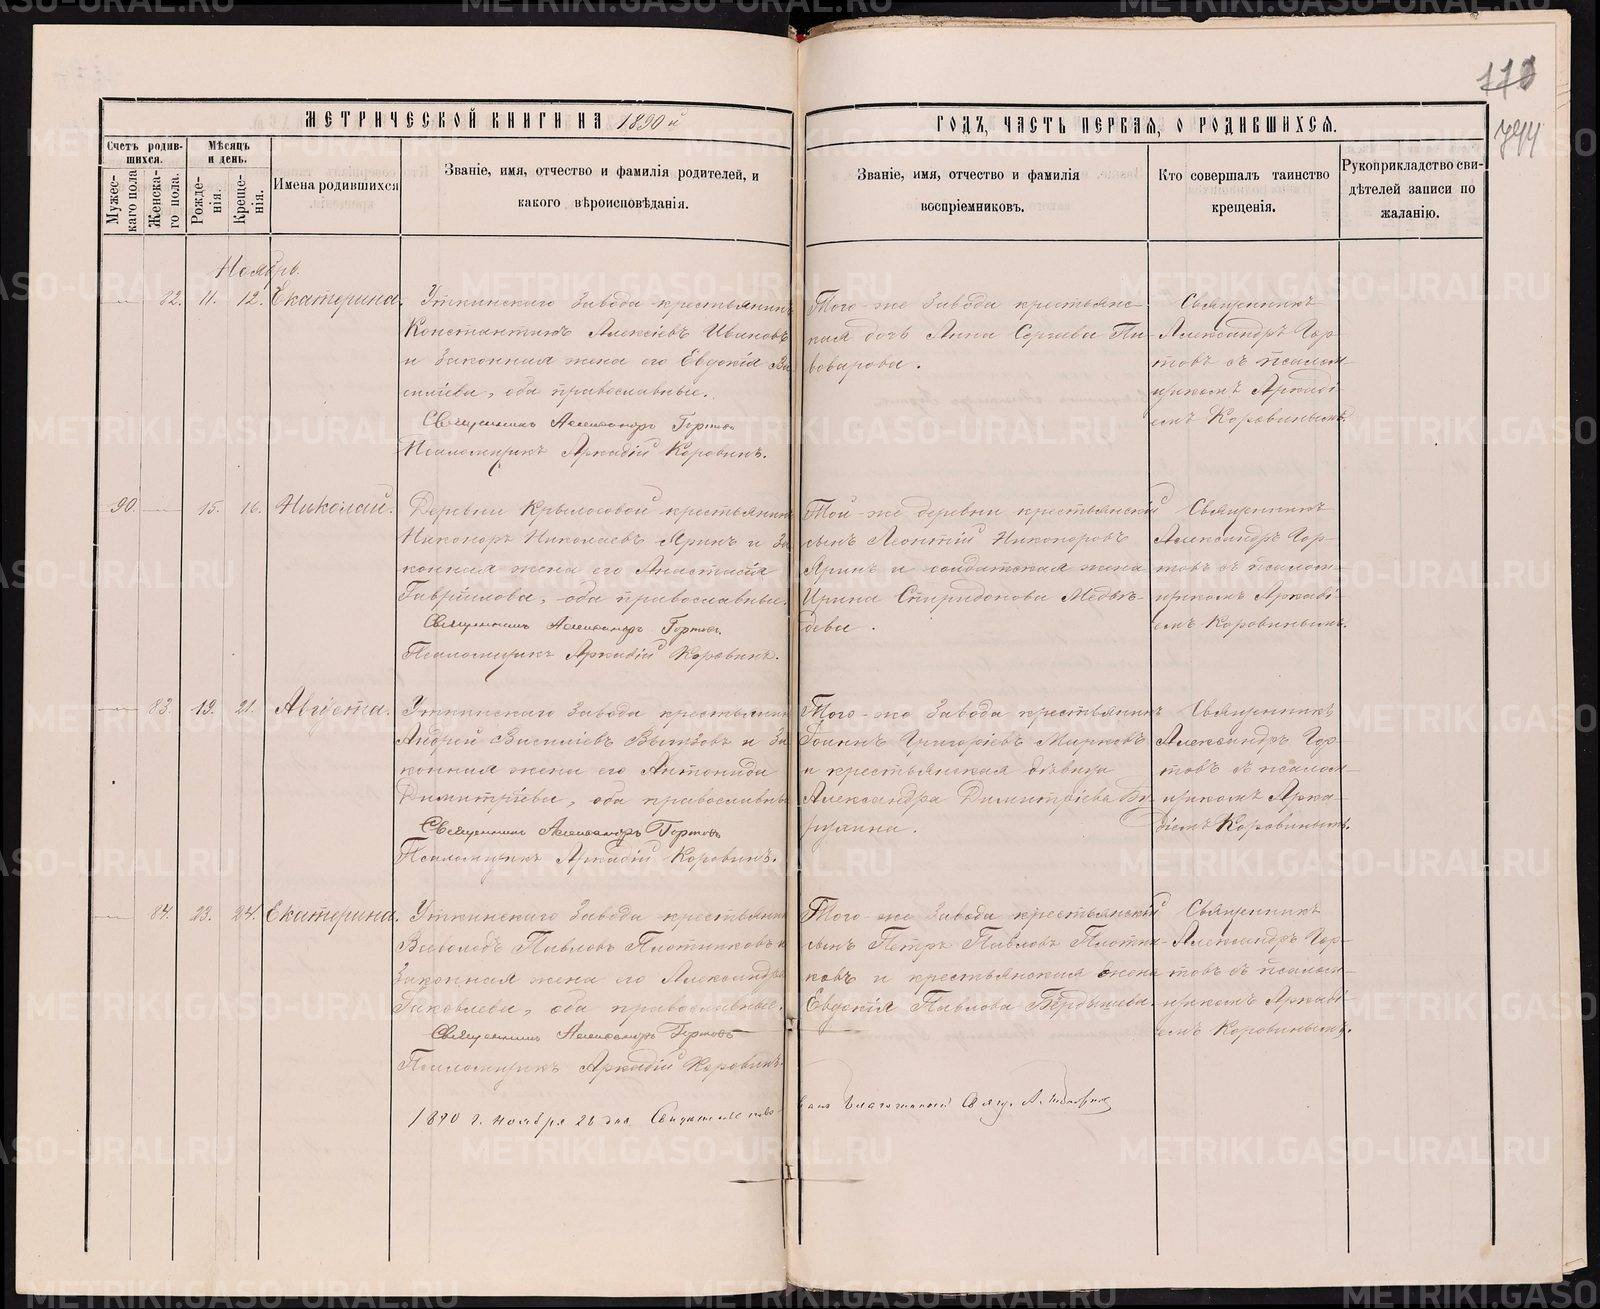 МЕТРИЧЕСКОЙ КНИГИ НА 1890 й
ГОДЪ, ЧАСТЬ ПЕРВАЯ, О РОДИВШИХСЯ.
Счетъ родив-
шихся.
Мужес-
каго пола
Женска-
го пола.
Мѣсяцъ
и день.
Рожде-
нія.
Креще-
нія.
Имена родившихся
Званіе, имя, отчество и фамилія родителей, и
какого вѣроисповѣданія.
Званіе, имя, отчество и фамилія
воспріемниковъ.
Кто совершалъ таинство
крещенія.
Рукоприкладство сви-
дѣтелей записи по
жаланію.
Ноябрь.
82. 11. 12. Екатерина.
Уткинскаго Завода крестьянинъ
Константинъ Алексіевъ Ивановъ
и законная жена его Евдокія Ва
силіева, оба православные.
Священникъ Александръ Гортовъ
Псаломщикъ Аркадій Коровинъ.
Того-же Завода крестьянс-
кая дочь Анна Сергіева Пи
воварова.
Священникъ
Александръ Гор-
товъ съ псалом-
щикомъ Аркаді-
емъ Коровинымъ.
90. 15. 16. Николай.
Деревни Крылосовой крестьянинъ
Никоноръ Николаевъ Яринъ и за
конная жена его Анастасія
Гавріилова, оба православные.
Священникъ Александръ Гортовъ.
Псаломщикъ Аркадій Коровинъ.
Той-же деревни крестьянскій
сынъ Леонтій Никоноровъ
Яринъ и солдатская жена
Ирина Спиридонова Медвѣ-
дева.
Священникъ
Александръ Гор-
товъ съ псалом-
щикомъ Аркаді-
емъ Коровинымъ.
83. 19. 21. Августа.
Уткинскаго Завода крестьянинъ
Андрей Василіевъ и за
конная жена его Антонида
Димитріева, оба православные
Священникъ Александръ Гортовъ
Псаломщикъ Аркадій Коровинъ.
Того-же Завода крестьянинъ
Іоаннъ Григоріевъ Марковъ
и крестьянская дѣвица
Александра Димитріева
Священникъ
Александръ Гор-
товъ съ псалом-
щикомъ Арка-
діемъ Коровинымъ.
84. 23. 24. Екатерина.
Уткинскаго Завода крестьянинъ
Всеволодъ Павловъ Плотниковъ и
законная жена его Александра
Іаковлева, оба православные.
Священникъ Александръ Гортовъ
Псаломщикъ Аркадій Коровинъ.
Того-же Завода крестьянскій
сынъ Петръ Павловъ Плотни-
ковъ и крестьянская жена
Евдокія Павлова Бердышева.
Священникъ
Александръ Гор-
товъ съ псалом-
щикомъ Аркаді-
емъ Коровинымъ.
1890 г. Ноября 28 дня.
Благочинный Свящ.
METRIKI.GASO-URAL.RU